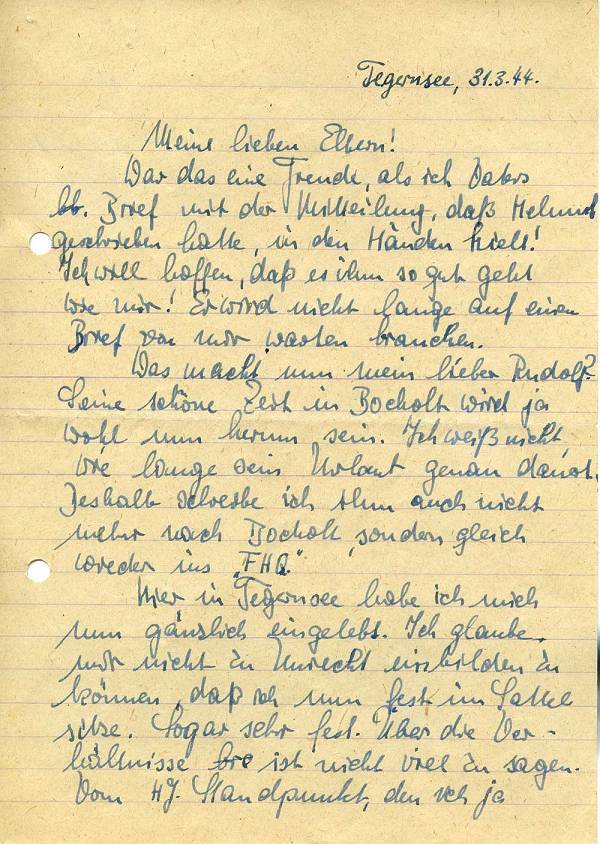 Tegernsee, 31.3.44.
Meine lieben Eltern!
War das eine Freude, als ich Vaters
lb. Brief mit der Mitteilung, daß Helmut
geschrieben hatte, in den Händen hielt!
Ich will hoffen, daß es ihm so gut geht
wie mir! Er wird nicht lange auf einen
Brief von mir warten brauchen.
Was macht nun mein lieber Rudolf?
Seine schöne Zeit in Bocholt wird ja
wohl nun herum sein. Ich weiß nicht
wie lange sein Urlaub genau dauert.
Deshalb schreibe ich ihm auch nicht
mehr nach Bocholt, sondern gleich
wieder ins „FHQ“
Hier in Tegernsee habe ich mich
nun gänzlich eingelebt. Ich glaube
mir nicht zu Unrecht einbilden zu
können, daß ich nun fest im Sattel
sitze. Sogar sehr fest. Über die Ver-
hältnisse ist nicht viel zu sagen.
Vom HJ. Standpunkt, den ich ja